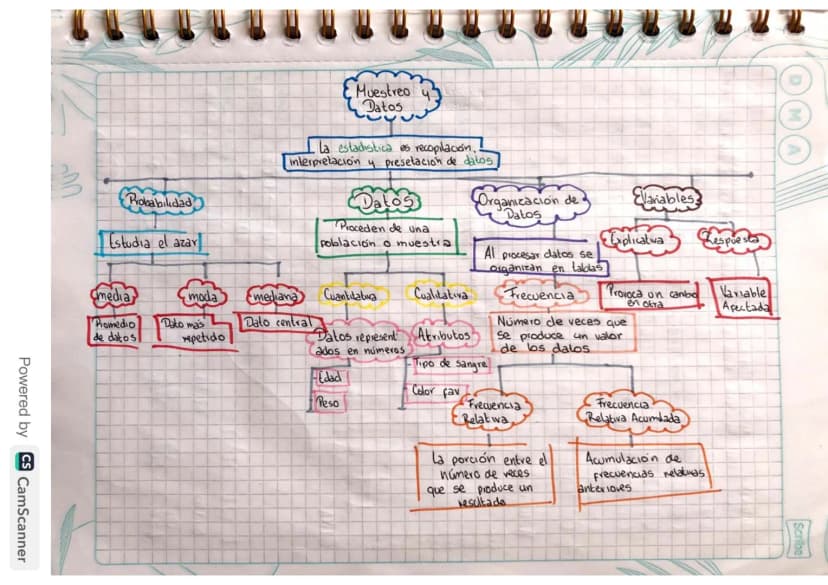 Muestreo y
Datos
La estadística es recopilación,
interpretación y presetación de datos
Probabilidad
Estudia el azar
media
Promedio
de datos
moda
Dato más
repetido
mediana
Dato central
Datos
Proceden de una
población o muestra
Cuantitativa
Datos represent
ados en números
Edad
Peso
Cualitativa
Atributos
Tipo de sangre
Color fav
Organización de
Datos
Al procesar datos se
organizan en tablas
Frecuencia
Número de veces que
se produce un valor
de los datos
Frecuencia
Relativa
La porción entre el
número de veces
que se produce un
resultado
Frecuencia
Relativa Acumlada
Acumulación de
frecuencias relativas
anteriores
Variables
Explicativa
Provoca un cambio
en otra
Respuesta
Variable
Afectada
D
M
A
Scribe
Powered by CS CamScanner